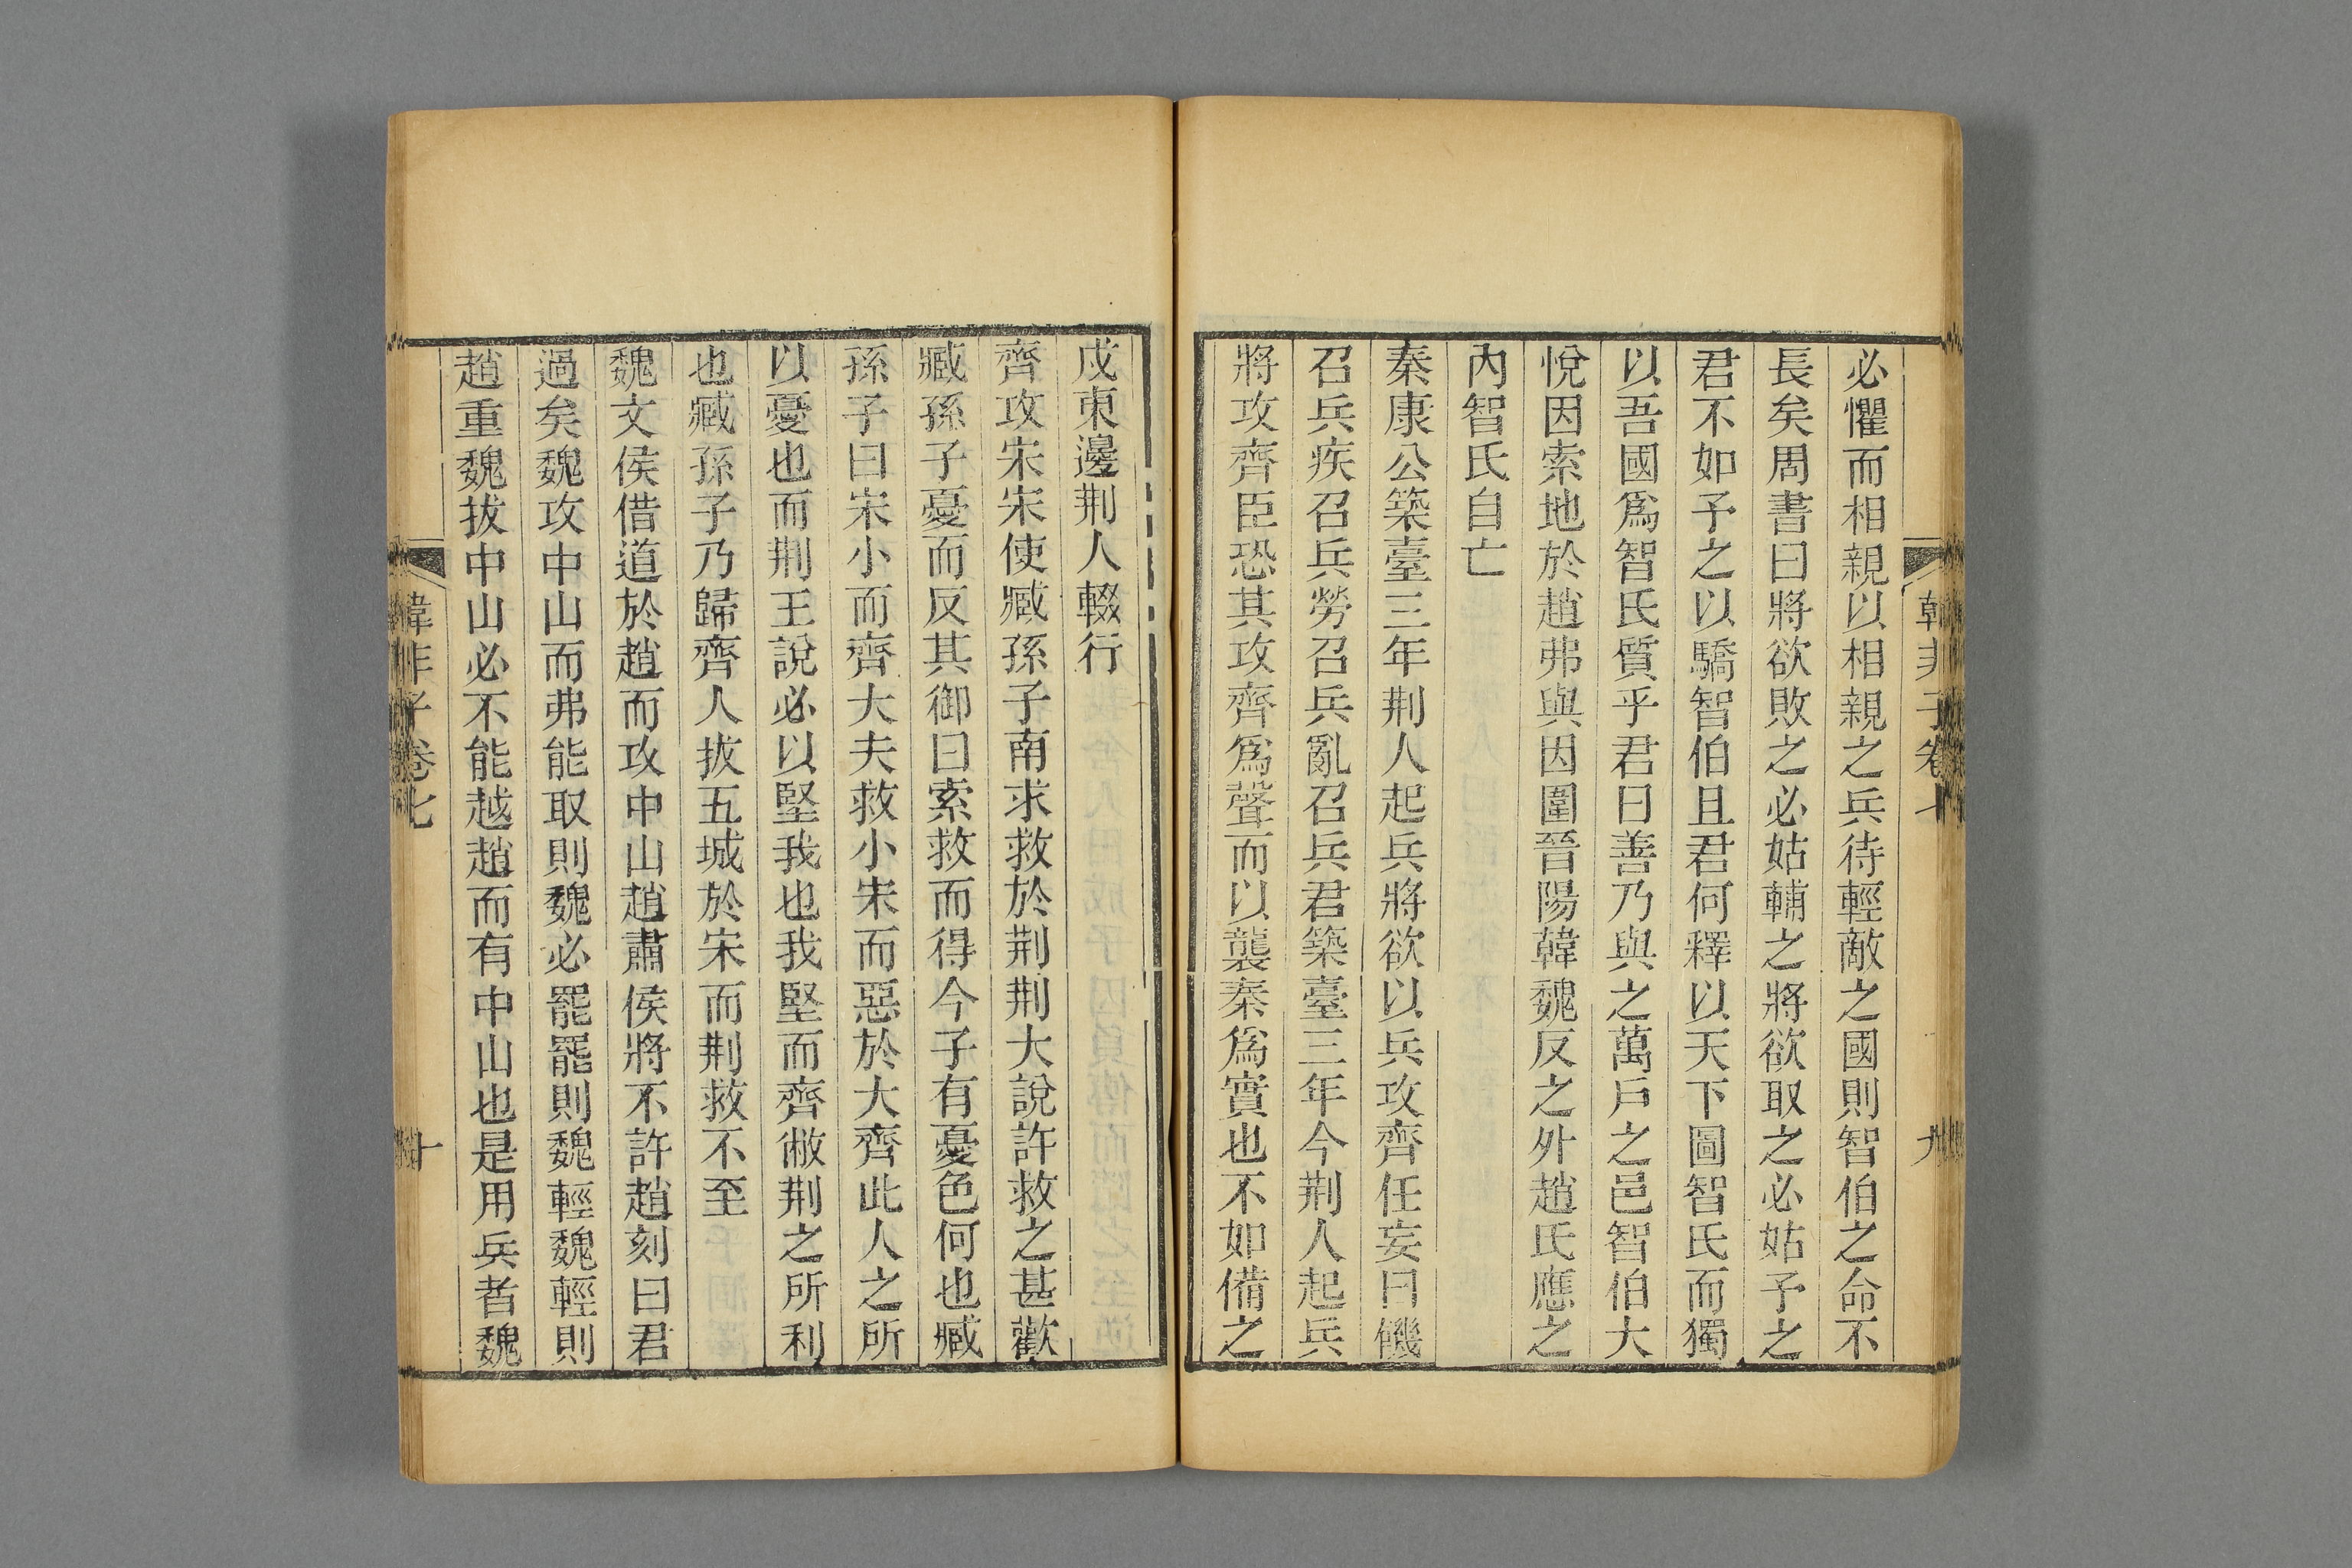 韓非子卷七
九
必懼而相親以相親之兵待輕敵之國則智伯之命不
長矣周書曰將欲敗之必姑輔之將欲取之必姑予之
君不如予之以驕智伯且君何釋以天下圖智氏而獨
以吾國爲智氏質乎君曰善乃與之萬戶之邑智伯大
悅因索地於趙弗與因圍晉陽韓魏反之外趙氏應之
內智氏自亡
秦康公築臺三年荆人起兵將欲以兵攻齊任妄曰饑
召兵疾召兵勞召兵亂召兵君築臺三年今荆人起兵
將攻齊臣恐其攻齊爲聲而以襲秦爲實也不如備之
戍東邊荆人輟行
齊攻宋宋使臧孫子南求救於荆荆大說許救之甚歡
臧孫子憂而反其御曰索救而得今子有憂色何也臧
孫子曰宋小而齊大夫救小宋而惡於大齊此人之所
以憂也而荆王說必以堅我也我堅而齊敝荆之所利
也臧孫子乃歸齊人拔五城於宋而荆救不至
魏文侯借道於趙而攻中山趙肅侯將不許趙刻曰君
過矣魏攻中山而弗能取則魏必罷罷則魏輕魏輕則
趙重魏拔中山必不能越趙而有中山也是用兵者魏
韓非子卷七
十